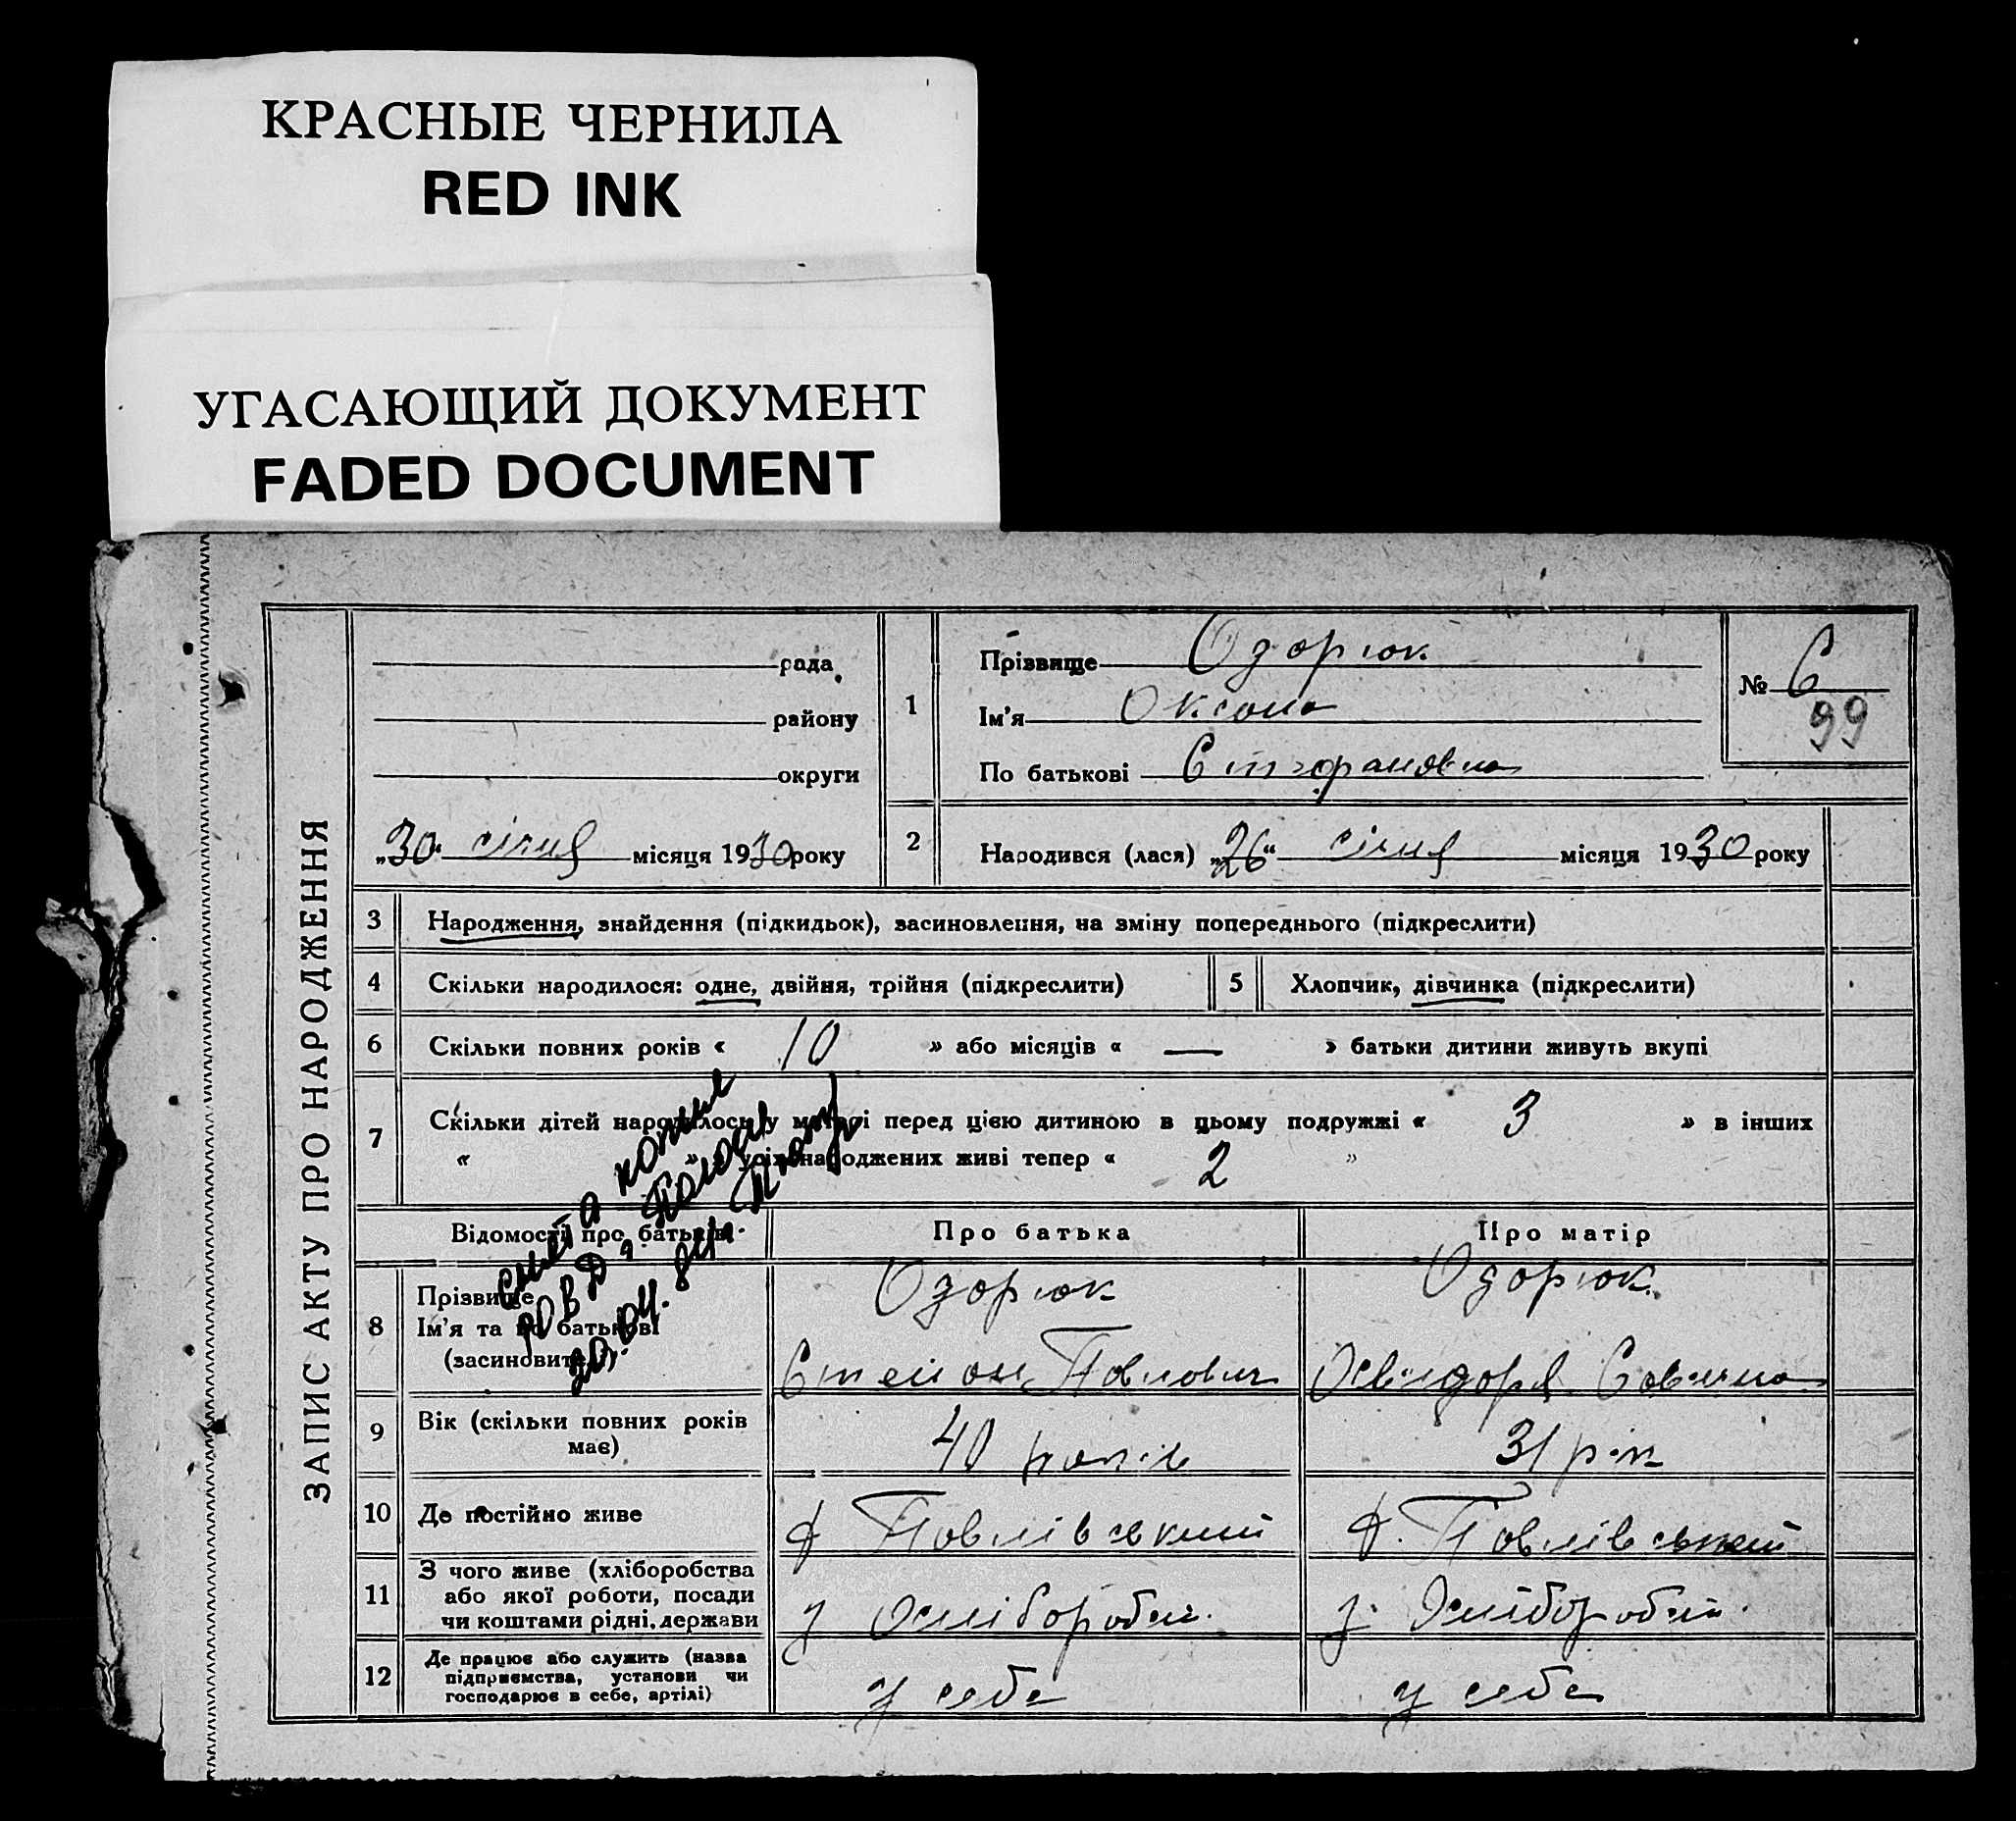 КРАСНЫЕ ЧЕРНИЛА
RED INK
УГАСАЮЩИЙ ДОКУМЕНТ
FADED DOCUMENT
ЗАПИС АКТУ ПРО НАРОДЖЕННЯ
рада
району
округи
„30“ січня місяця 1930 року
1 Прізвище Озорюк
Ім'я Оксана
По батькові
№ 6
99
2 Народився (лася) „26“ січня місяця 1930 року
3 Народження, знайдення (підкидьок), засиновлення, на зміну попереднього (підкреслити)
4 Скільки народилося: одне, двійня, трійня (підкреслити)
5 Хлопчик, дівчинка (підкреслити)
6 Скільки повних років « 10 » або місяців « — » батьки дитини живуть вкупі
7 Скільки дітей народилось у матері перед цією дитиною в цьому подружжі « 3 » в інших
« » з усіх народжених живі тепер « 2 »
Відомості про батьків
Про батька
Про матір
8 Прізвище
Ім'я та по батькові
(засиновител.)
Озорюк
Степан Павлович
Озорюк
9 Вік (скільки повних років
має)
40 років
31 рік
10 Де постійно живе
х Павлівський
х. Павлівський
11 З чого живе (хліборобства
або якої роботи, посади
чи коштами рідні, держави
з хлібороб.
з хлібороб.
12 Де працює або служить (назва
підприємства, установи чи
господарює в себе, артілі)
у себе
у себе